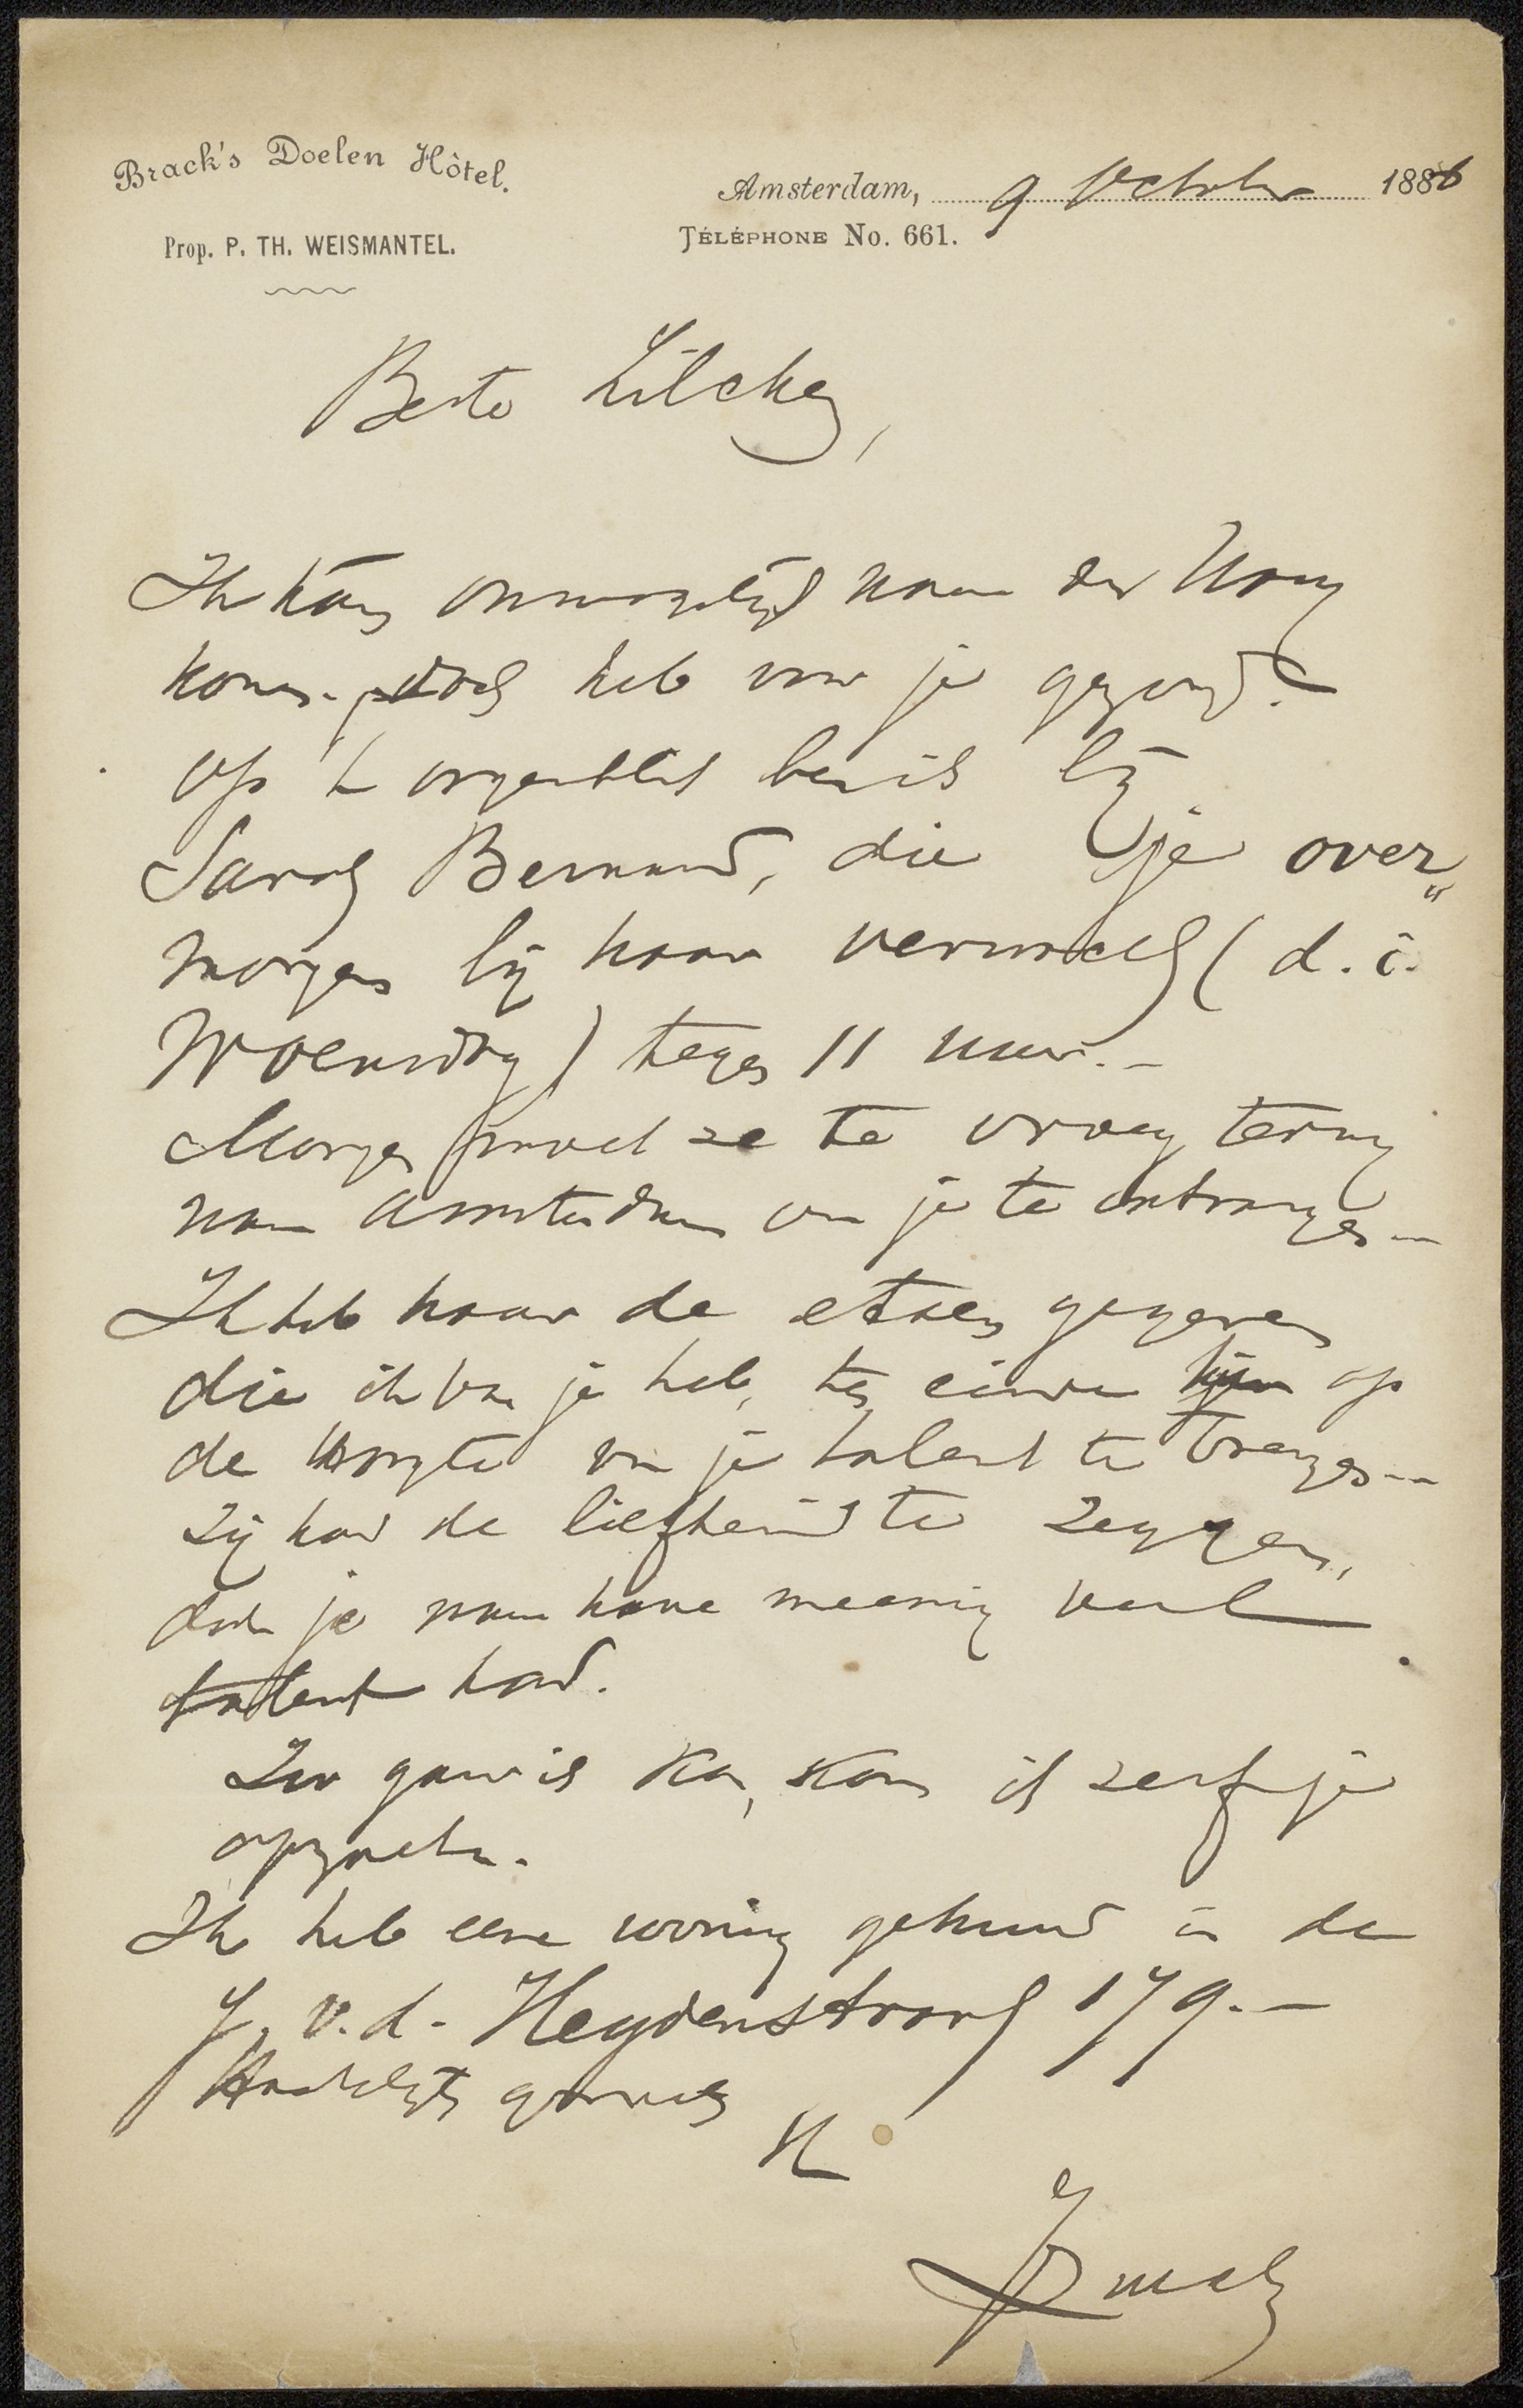 Brack's Doelen Hôtel.
Prop. P. TH. WEISMANTEL.
Amsterdam, 9 October 1886
TÉLÉPHONE No. 661.
Beste Zilcken,
Ik kan onmogelijk naar den Haag
komen, doch heb voor je gezorgd.
Op 't oogenblik ben ik bij
Sarah Bernard, die je over„
morgen bij haar verwacht (d. i.
Woensdag) tegen 11 uur.-
Morgen moet ze te vroeg terug
naar Amsterdam om je te ontvangen -
Ik heb haar de etsen gegeven
die ik van je heb, ten einde haar op
de hoogte van je talent te brengen --
Zij had de liefheid te zeggen,
dat je naar hare meening veel
talent had.
Zoo gauw ik kan, kom ik zelf je
opzoeken.
Ik heb eene woning gehuurd in de
J. v. d. Heydenstraat 179.-
Hartelijk gegroet